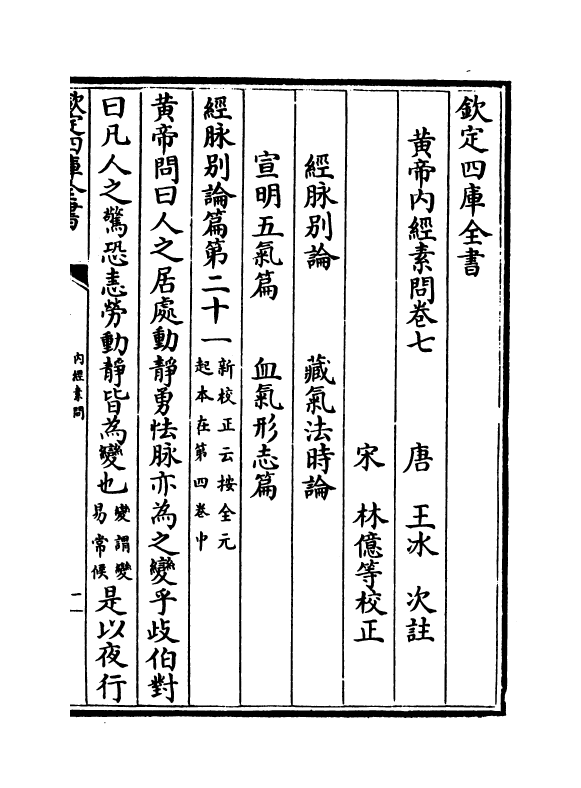 欽定四庫全書
黃帝內經素問卷七
唐 王冰 次註
宋 林億等校正
經脉别論 藏氣法時論
宣明五氣篇 血氣形志篇
經脉别論篇第二十一
新校正云按全元
起本在第四卷中
黃帝問曰人之居處動靜勇怯脉亦為之變乎歧伯對
曰凡人之驚恐恚勞動靜皆為變也
變謂變
易常候
是以夜行
欽定四庫全書
內經素問
一